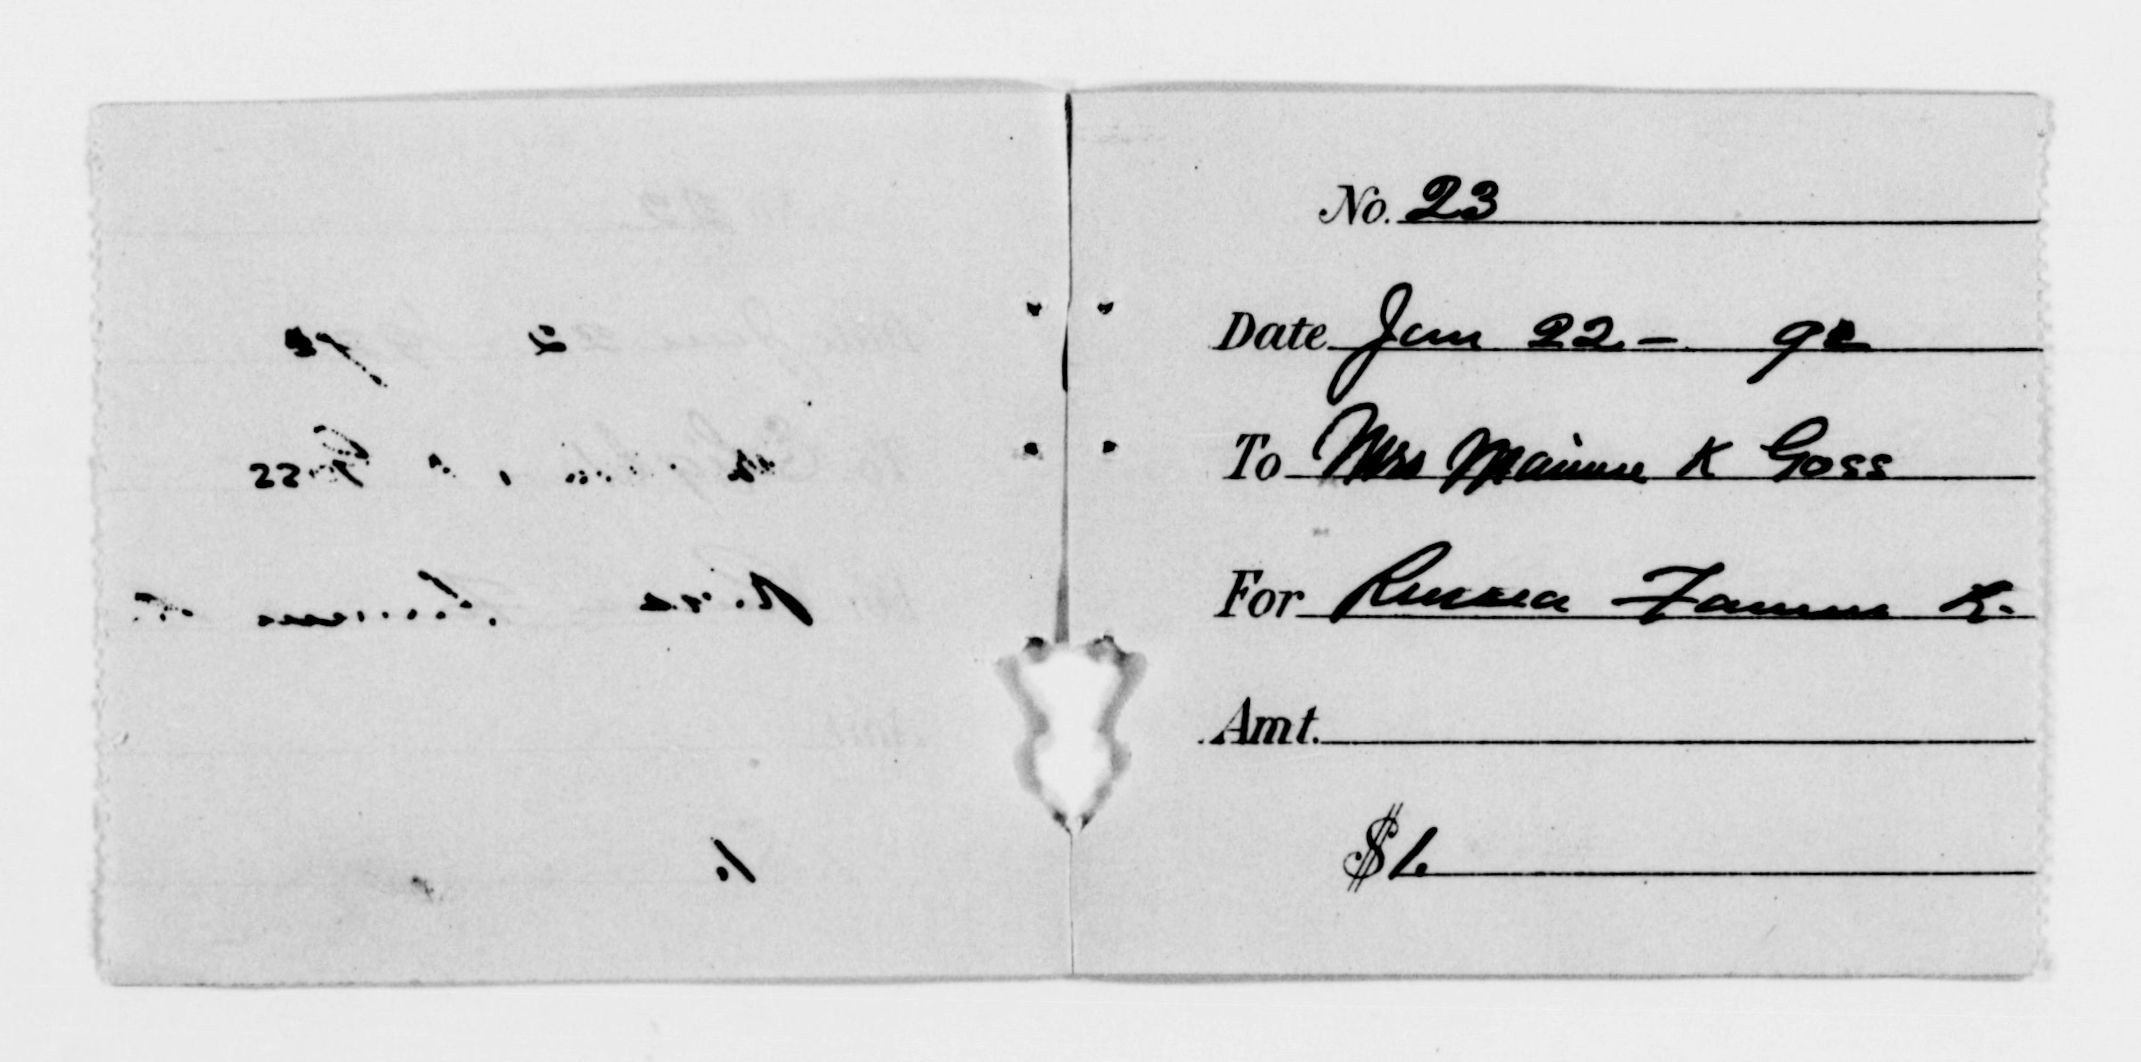 No. 23
Date Jan 22 - 92
To Mrs Mamie K Goss
For Russia Famine R.
Amt.
$1.